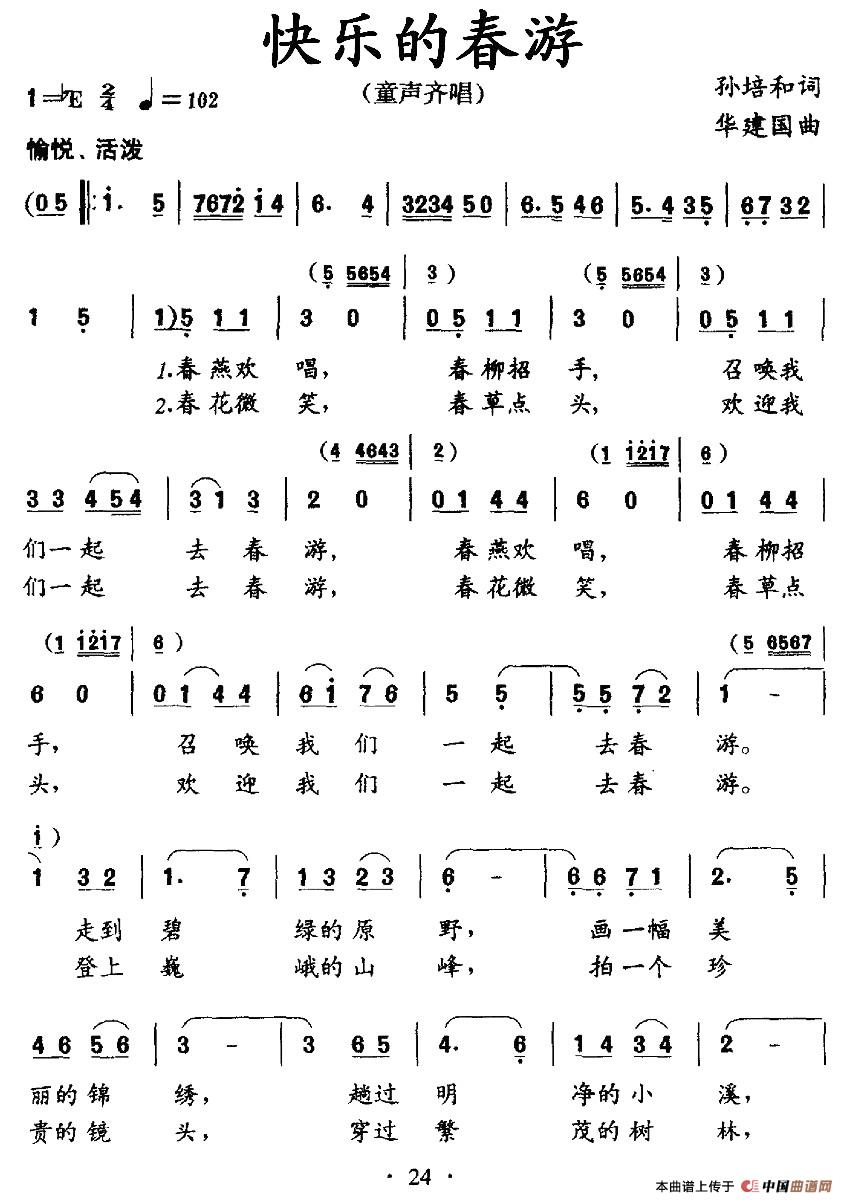 快乐的春游
1=♭E 2/4 ♩=102
（童声齐唱）
孙培和词
华建国曲
愉悦、活泼
(0 5 ‖: i. 5 | 7672 i4 | 6. 4 | 3234 50 | 6. 5 46 | 5. 4 35 | 67 32 |
(5 5654 | 3) (5 5654 | 3)
1 5 | 1)5 11 | 3 0 | 05 11 | 3 0 | 05 11 |
1.春燕欢 唱， 春柳招 手， 召唤我
2.春花微 笑， 春草点 头， 欢迎我
(4 4643 | 2) (1 i2i7 | 6)
33 454 | 31 3 | 2 0 | 01 44 | 6 0 | 01 44 |
们一起 去春 游， 春燕欢 唱， 春柳招
们一起 去春 游， 春花微 笑， 春草点
(1 i2i7 | 6) (5 6567 |
6 0 | 01 44 | 6i 76 | 5 5 | 55 72 | 1 - |
手， 召唤 我们 一起 去春 游。
头， 欢迎 我们 一起 去春 游。
i)
1 32 | 1. 7 | 13 23 | 6 - | 66 71 | 2. 5 |
走到 碧 绿的原 野， 画一幅 美
登上 巍 峨的山 峰， 拍一个 珍
46 56 | 3 - | 3 65 | 4. 6 | 14 34 | 2 - |
丽的锦 绣， 趟过 明 净的小 溪，
贵的镜 头， 穿过 繁 茂的树 林，
· 24 ·
本曲谱上传于 中国曲谱网